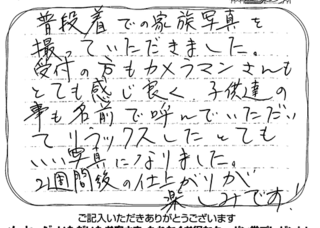 普段着での家族写真を
撮っていただきました。
受付の方もカメラマンさんも
とても感じ良く、子供達の
事も名前で呼んでいただい
てリラックスしたとても
いい写真になりました。
2週間後の仕上がりが
楽しみです!
ご記入いただきありがとうございます